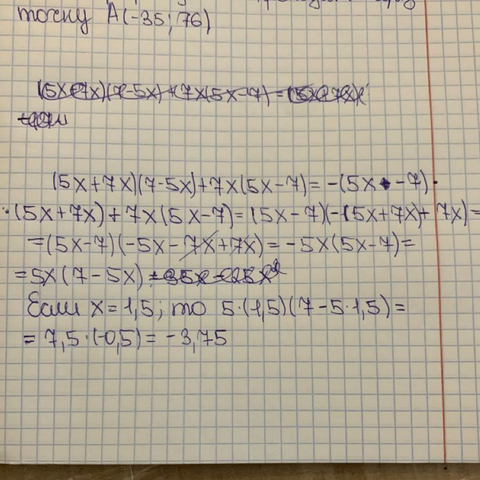 точку A(-35; 76)
(5x+7x)(7-5x)+7x(5x-7)=-(5x-7)·
·(5x+7x)+7x(5x-7)=(5x-7)(-(5x+7x)+7x)=
=(5x-7)(-5x-7x+7x)=-5x(5x-7)=
=5x(7-5x)
Если x=1,5; то 5·(1,5)(7-5·1,5)=
=7,5·(-0,5)=-3,75